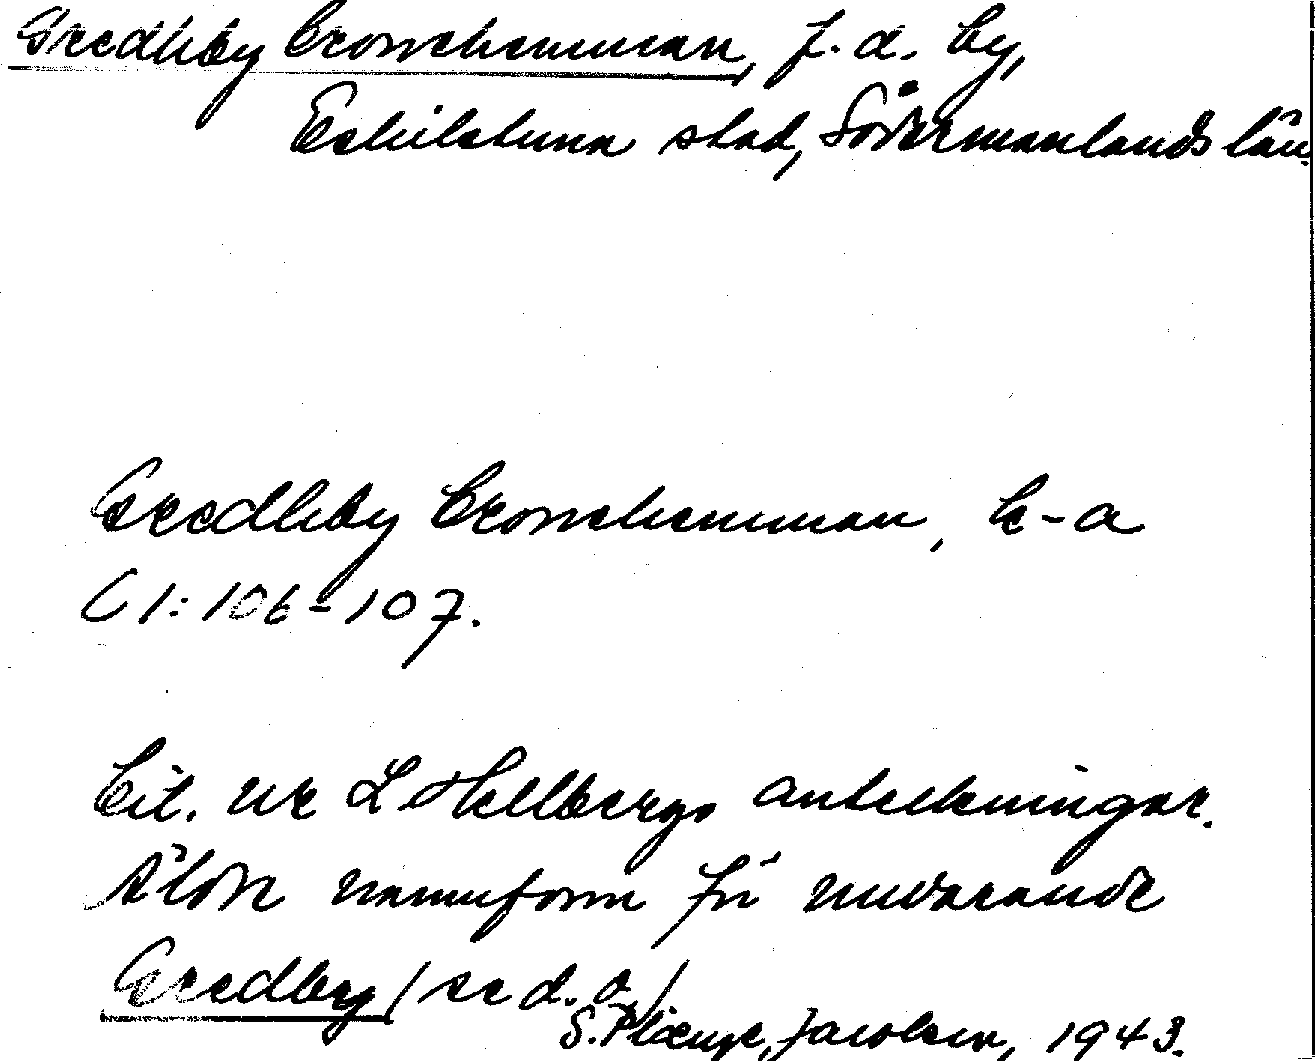 Gredhby Cronohemman, f.d. by,
Eskilstuna stad, Södermanlands län.
Gredhby Cronohemman, k-a
C 1: 106-107.
Cit. ur L Hellbergs anteckningar.
Äldre namnform för nuvarande
Gredby (se d. o.)
S. Plænge Jacobson, 1943.